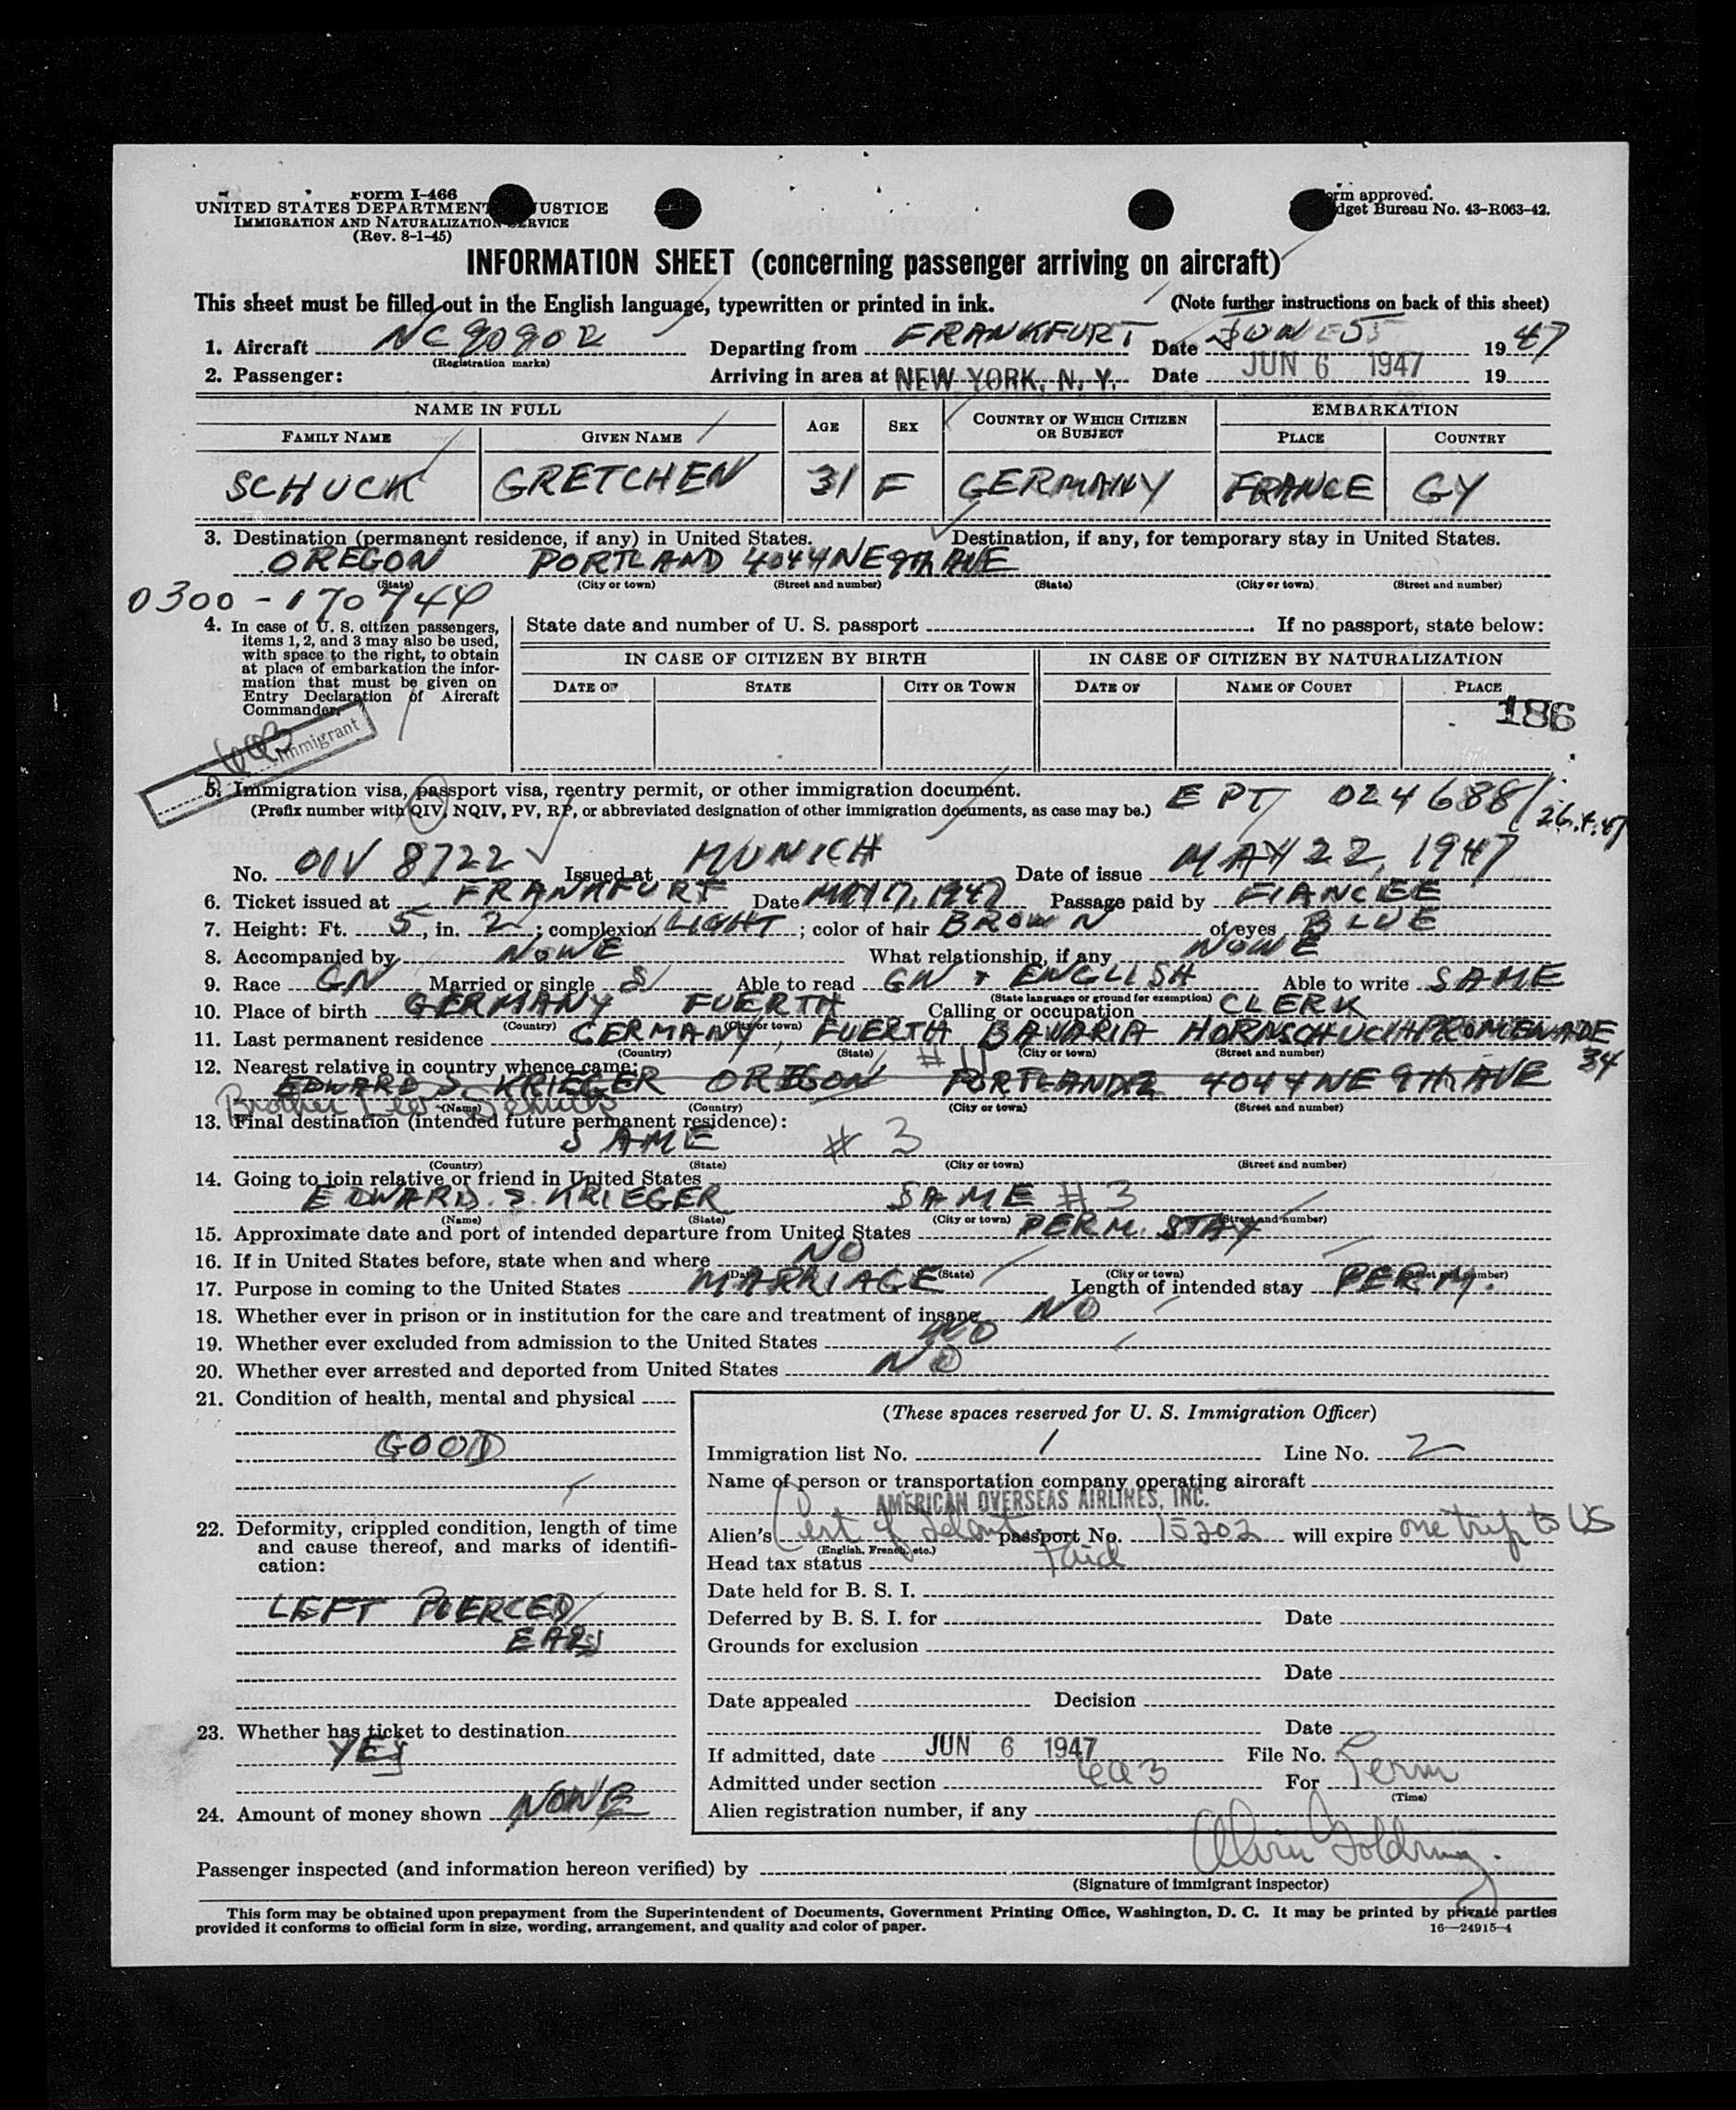 Form I-466
UNITED STATES DEPARTMENT JUSTICE
IMMIGRATION AND NATURALIZATION SERVICE
(Rev. 8-1-45)
orm approved.
dget Bureau No. 43-R063-42.
INFORMATION SHEET (concerning passenger arriving on aircraft)
This sheet must be filled out in the English language, typewritten or printed in ink. (Note further instructions on back of this sheet)
1. Aircraft NC 90902 Departing from FRANKFURT Date JUNE 5 1947
(Registration marks)
2. Passenger: Arriving in area at NEW YORK, N. Y. Date JUN 6 1947 19
NAME IN FULL AGE SEX COUNTRY OF WHICH CITIZEN OR SUBJECT EMBARKATION
FAMILY NAME GIVEN NAME PLACE COUNTRY
SCHUCK GRETCHEN 31 F GERMANY FRANCE GY
3. Destination (permanent residence, if any) in United States. Destination, if any, for temporary stay in United States.
OREGON PORTLAND 4044 NE 9th AVE
(State) (City or town) (Street and number) (State) (City or town) (Street and number)
0300-170744
4. In case of U. S. citizen passengers, items 1, 2, and 3 may also be used, with space to the right, to obtain at place of embarkation the information that must be given on Entry Declaration of Aircraft Commander.
State date and number of U. S. passport If no passport, state below:
IN CASE OF CITIZEN BY BIRTH IN CASE OF CITIZEN BY NATURALIZATION
DATE OF STATE CITY OR TOWN DATE OF NAME OF COURT PLACE
186
Immigrant
5. Immigration visa, passport visa, reentry permit, or other immigration document.
(Prefix number with QIV, NQIV, PV, RP, or abbreviated designation of other immigration documents, as case may be.) EPT 024688/
26.4.47
No. QIV 8722 Issued at MUNICH Date of issue MAY 22, 1947
6. Ticket issued at FRANKFURT Date MAY 17, 1947 Passage paid by FIANCEE
7. Height: Ft. 5, in. 2; complexion LIGHT; color of hair BROWN of eyes BLUE
8. Accompanied by NONE What relationship, if any NONE
9. Race GN Married or single S Able to read GN + ENGLISH Able to write SAME
(State language or ground for exemption)
10. Place of birth GERMANY FUERTH Calling or occupation CLERK
(Country) (City or town)
11. Last permanent residence GERMANY, FUERTH BAVARIA HORNSCHUCHPROMENADE 34
(Country) (State) (City or town) (Street and number)
12. Nearest relative in country whence came: # 11
EDWARD S KRIEGER OREGON PORTLAND 12 4044 NE 9th AVE
Brother Leo Schuck
(Name) (Country) (City or town) (Street and number)
13. Final destination (intended future permanent residence):
SAME # 3
(Country) (State) (City or town) (Street and number)
14. Going to join relative or friend in United States
EDWARD S. KRIEGER SAME # 3
(Name) (State) (City or town) (Street and number)
15. Approximate date and port of intended departure from United States PERM. STAY
16. If in United States before, state when and where NO
(Date) (State) (City or town) (Street and number)
17. Purpose in coming to the United States MARRIAGE Length of intended stay PERM.
18. Whether ever in prison or in institution for the care and treatment of insane NO
19. Whether ever excluded from admission to the United States NO
20. Whether ever arrested and deported from United States NO
21. Condition of health, mental and physical
GOOD
22. Deformity, crippled condition, length of time and cause thereof, and marks of identification:
LEFT PIERCED
EARS
23. Whether has ticket to destination
YES
24. Amount of money shown NONE
(These spaces reserved for U. S. Immigration Officer)
Immigration list No. 1 Line No. 2
Name of person or transportation company operating aircraft
AMERICAN OVERSEAS AIRLINES, INC.
Alien's Cert of Ident passport No. 15202 will expire one trip to US
(English, French, etc.)
Head tax status Paid
Date held for B. S. I.
Deferred by B. S. I. for Date
Grounds for exclusion
Date
Date appealed Decision
Date
If admitted, date JUN 6 1947 File No.
Admitted under section 6a3 For Perm
(Time)
Alien registration number, if any
Passenger inspected (and information hereon verified) by
(Signature of immigrant inspector)
This form may be obtained upon prepayment from the Superintendent of Documents, Government Printing Office, Washington, D. C. It may be printed by private parties
provided it conforms to official form in size, wording, arrangement, and quality and color of paper. 16—24915-4